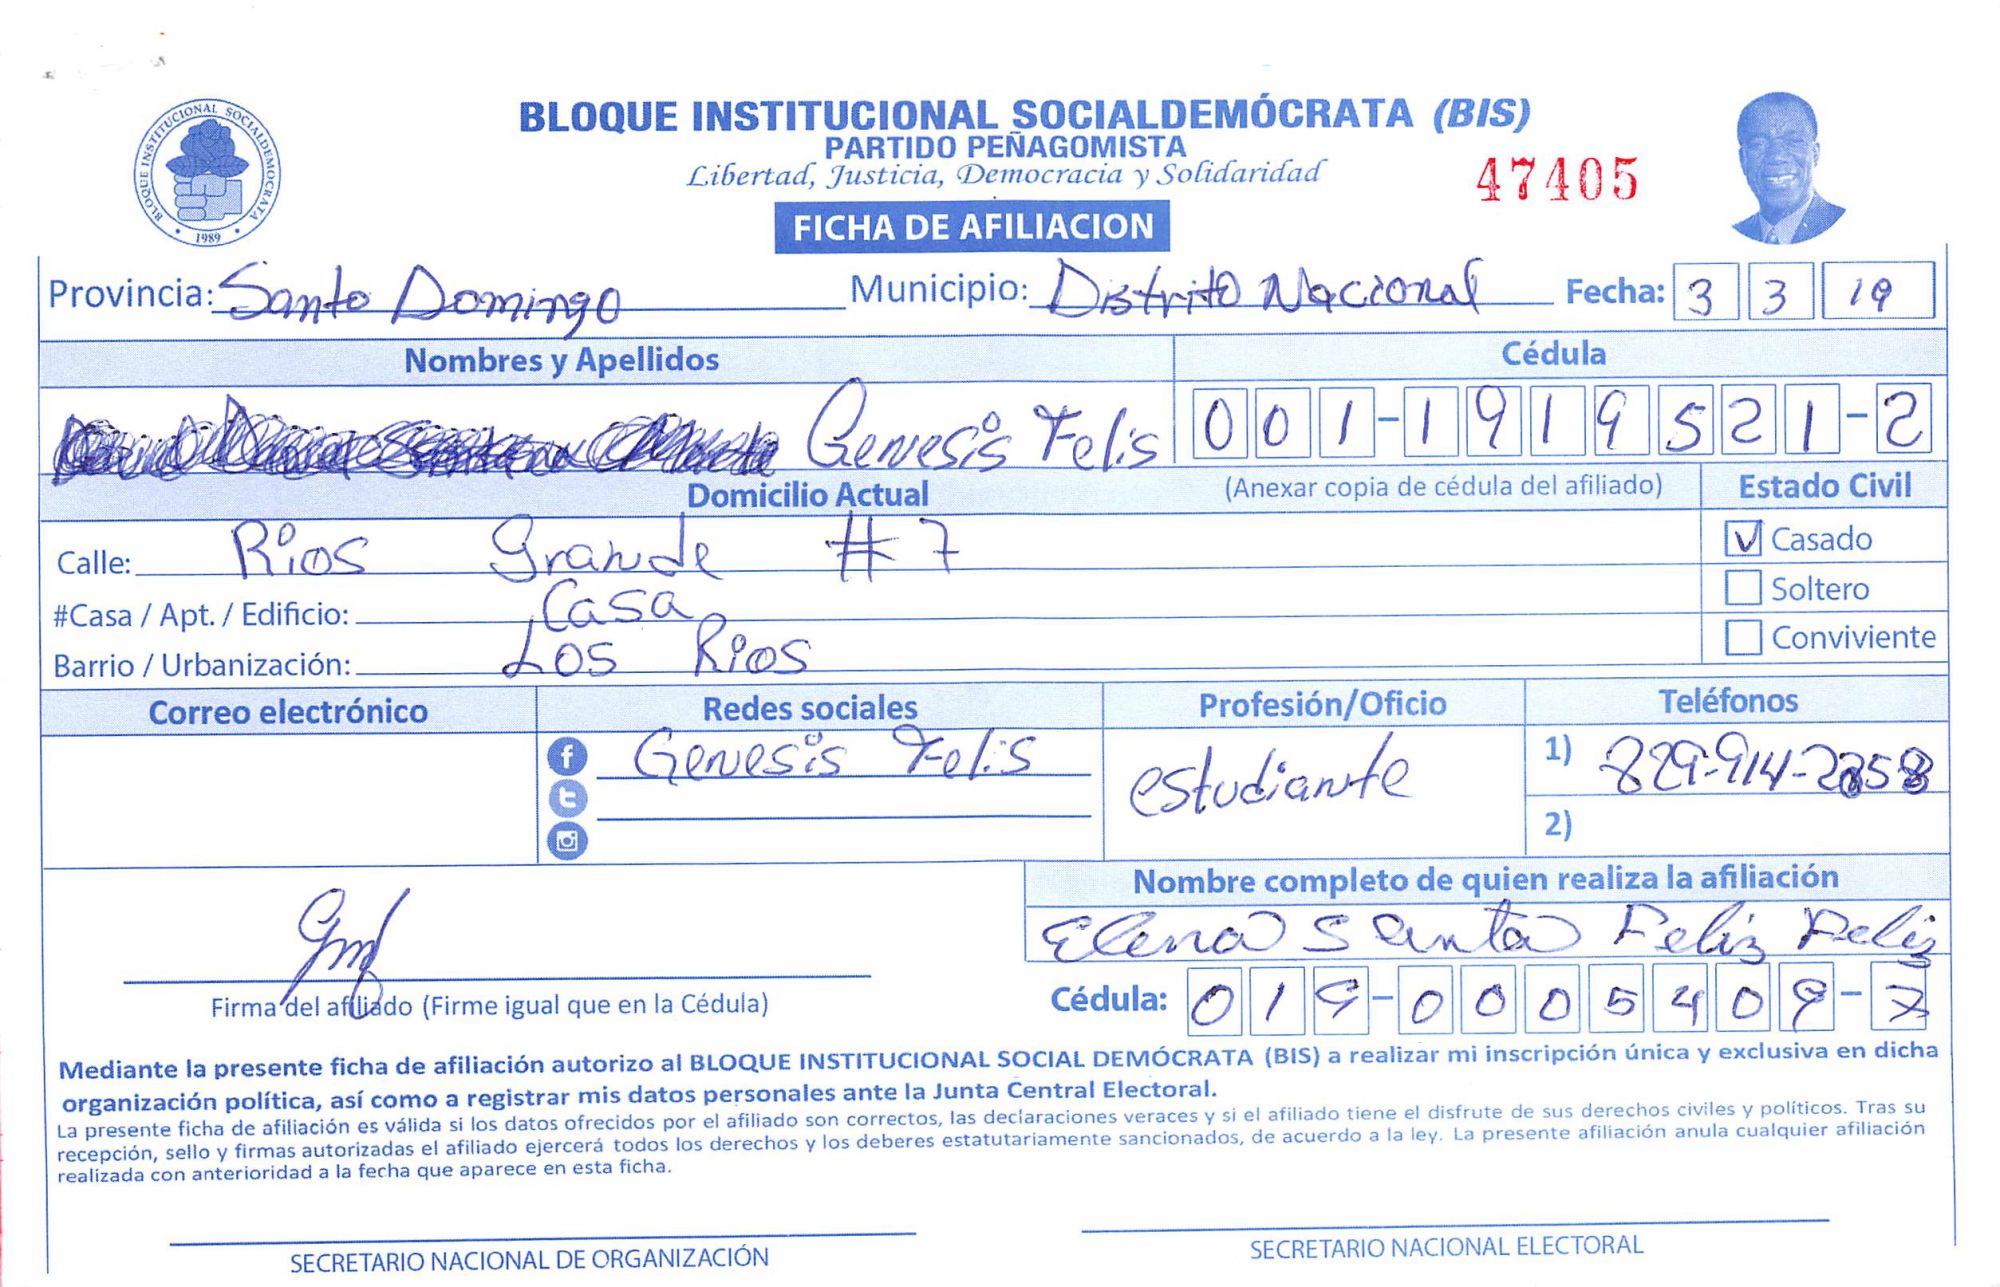 BLOQUE INSTITUCIONAL SOCIALDEMOCRATA
1989
BLOQUE INSTITUCIONAL SOCIALDEMÓCRATA (BIS)
PARTIDO PEÑAGOMISTA
Libertad, Justicia, Democracia y Solidaridad
47405
FICHA DE AFILIACION
Provincia: Santo Domingo Municipio: Distrito Nacional Fecha: 3 3 19
Nombres y Apellidos Cédula
Genesis Felis 001-1919521-2
Domicilio Actual (Anexar copia de cédula del afiliado) Estado Civil
Calle: Rios Grande #7 Casado
#Casa / Apt. / Edificio: Casa Soltero
Barrio / Urbanización: Los Rios Conviviente
Correo electrónico Redes sociales Profesión/Oficio Teléfonos
Genesis Felis estudiante 1) 829-914-2858
2)
Nombre completo de quien realiza la afiliación
Elena Santa Feliz Feliz
Firma del afiliado (Firme igual que en la Cédula) Cédula: 019-0005409-7
Mediante la presente ficha de afiliación autorizo al BLOQUE INSTITUCIONAL SOCIAL DEMÓCRATA (BIS) a realizar mi inscripción única y exclusiva en dicha
organización política, así como a registrar mis datos personales ante la Junta Central Electoral.
La presente ficha de afiliación es válida si los datos ofrecidos por el afiliado son correctos, las declaraciones veraces y si el afiliado tiene el disfrute de sus derechos civiles y políticos. Tras su
recepción, sello y firmas autorizadas el afiliado ejercerá todos los derechos y los deberes estatutariamente sancionados, de acuerdo a la ley. La presente afiliación anula cualquier afiliación
realizada con anterioridad a la fecha que aparece en esta ficha.
SECRETARIO NACIONAL DE ORGANIZACIÓN SECRETARIO NACIONAL ELECTORAL